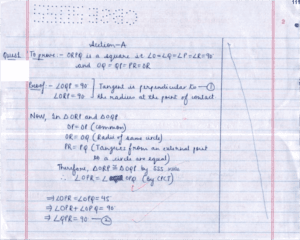 Section-A
Ques1. To prove :- ORPQ is a square i.e ∠O=∠Q=∠P=∠R=90
and OQ = QP = PR = OR
Proof - ∠OQP = 90 ] Tangent is perpendicular to -①
∠ORP = 90 the radius at the point of contact
Now, In ΔORP and ΔOQP
OP=OP (common)
OR = OQ (Radii of same circle)
PR = PQ (Tangents from an external point
to a circle are equal)
Therefore, ΔORP ≅ ΔOQP by SSS rule
∠OPR = ∠OPQ (by CPCT)
⇒∠OPR=∠OPQ = 45
⇒∠OPR+∠OPQ = 90
⇒∠QPR = 90 -②